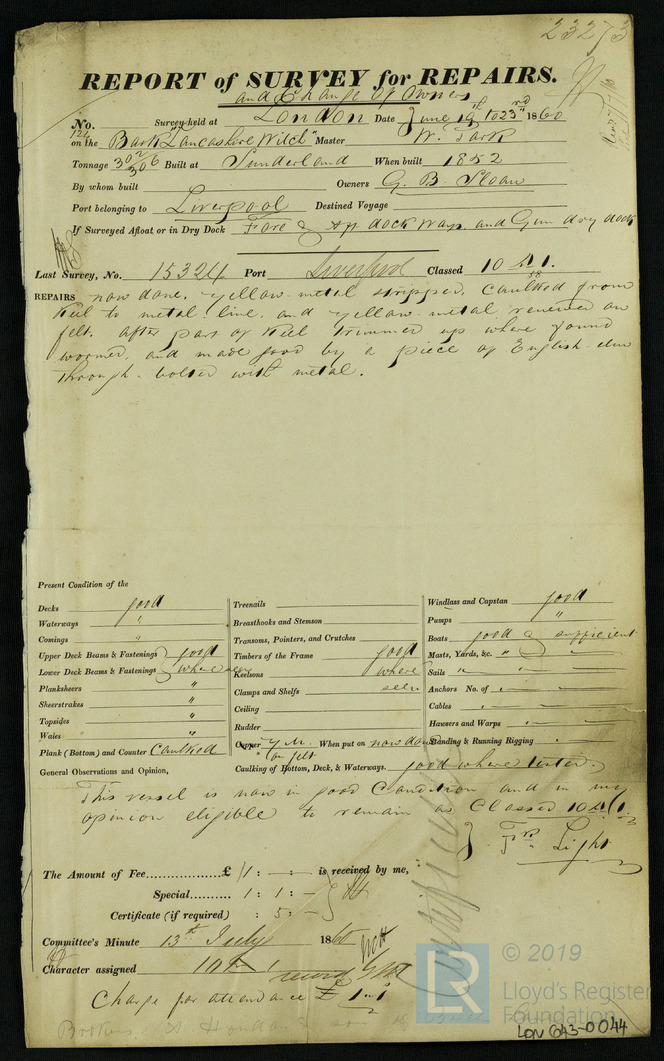 23273
REPORT of SURVEY for REPAIRS.
and Change of Owners
No. Survey held at London Date June 19th to 23rd 1860
on the Bark "Lancashire Witch" Master W. Tark
Tonnage 302 306 Built at Sunderland When built 1852
By whom built Owners G. B. Sloan
Port belonging to Liverpool Destined Voyage
If Surveyed Afloat or in Dry Dock Fore & Aft dock ways and Gun dry dock
Last Survey, No. 15324 Port Liverpool Classed 10 A 1. 58
REPAIRS now done. Yellow metal stripped, Caulked from
Keel to metal line, and yellow metal renewed on
felt. After part of Keel trimmed up where found
wormed, and made good by a piece of English elm
through-bolted with metal.
Present Condition of the
Decks good
Waterways "
Comings "
Upper Deck Beams & Fastenings good
Lower Deck Beams & Fastenings where seen
Planksheers "
Sheerstrakes "
Topsides "
Wales "
Plank (Bottom) and Counter Caulked
Treenails
Breasthooks and Stemson
Transoms, Pointers, and Crutches
Timbers of the Frame good
Keelsons where
Clamps and Shelfs seen
Ceiling
Rudder
Copper Y.M. When put on now done
on felt
Caulking of Bottom, Deck, & Waterways. good where tested.
Windlass and Capstan good
Pumps "
Boats good & sufficient
Masts, Yards, &c. "
Sails "
Anchors No. of
Cables
Hausers and Warps
Standing & Running Rigging
General Observations and Opinion,
This vessel is now in good Condition and in my
opinion eligible to remain as Classed 10 A 1.
Light
The Amount of Fee £ 1 : — : — is received by me,
Special 1 : 1 : —
Certificate (if required) : 5 : —
Committee's Minute 13th July 1860
Character assigned 10 A 1
Charge for attendance £ 1.1
© 2019
LR
Lloyd's Register
Foundation
LON 643-0044